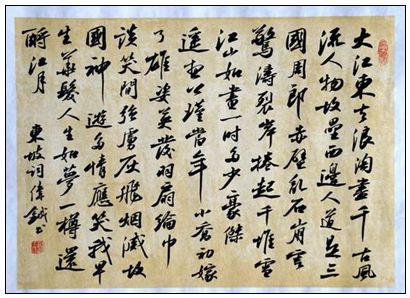 大江東去浪淘盡千古風
流人物故壘西邊人道是三
國周郎赤壁乱石崩雲
驚濤裂岸捲起千堆雪
江山如畫一時多少豪傑
遥想公瑾當年小喬初嫁
了雄姿英發羽扇綸巾
談笑間強虜灰飛烟滅故
國神遊多情應笑我早
生華髮人生如夢一樽還
酹江月 東坡词